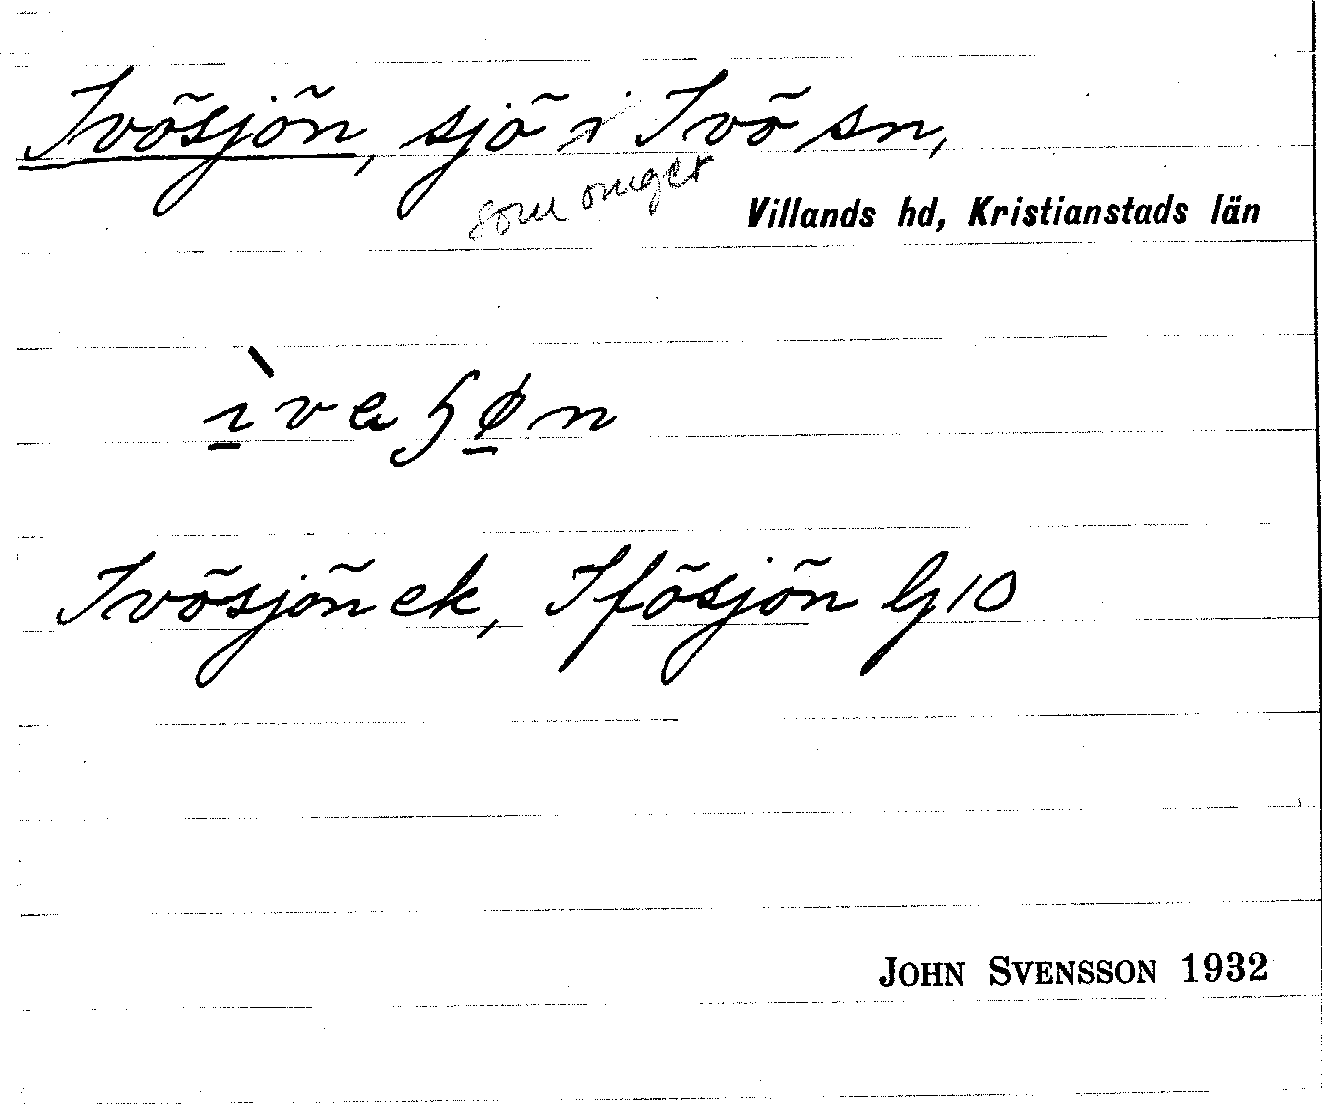 Ivösjön, sjö i Ivö sn,
som omger
Villands hd, Kristianstads län
Ivösjön ek, Ifösjön
JOHN SVENSSON 1932